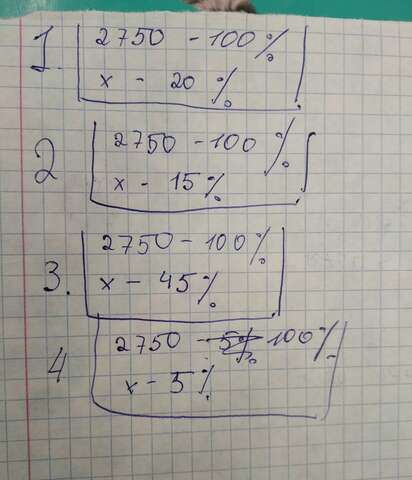 1. 2750 - 100%
x - 20%
2 2750 - 100%
x - 15%
3. 2750 - 100%
x - 45%
4 2750 - 5% 100%
x - 5%